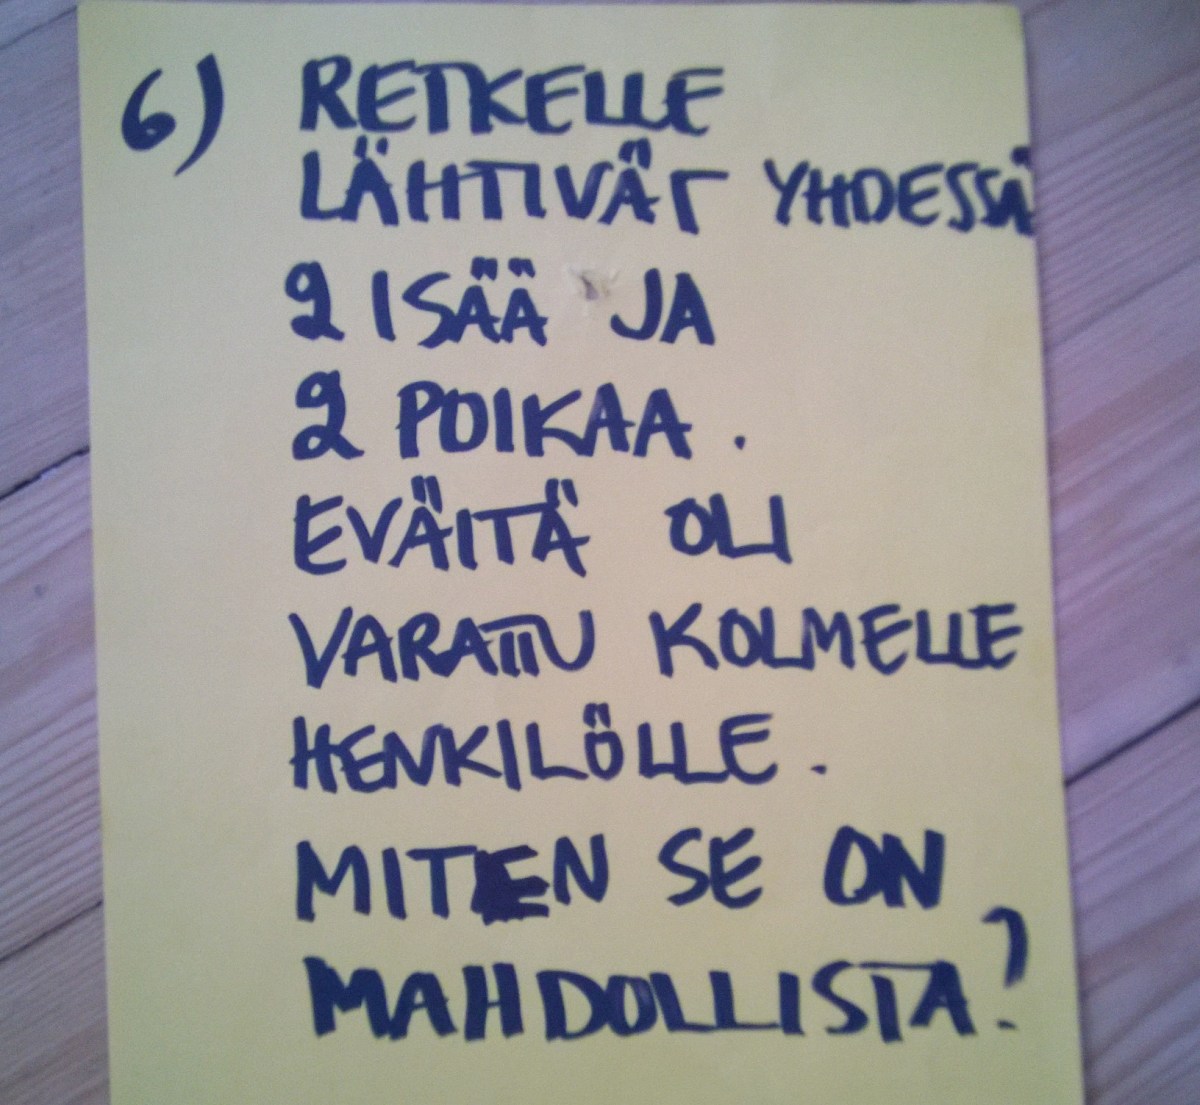 6) RETKELLE
LÄHTIVÄT YHDESSÄ
2 ISÄÄ JA
2 POIKAA.
EVÄITÄ OLI
VARATTU KOLMELLE
HENKILÖLLE.
MITEN SE ON
MAHDOLLISTA?